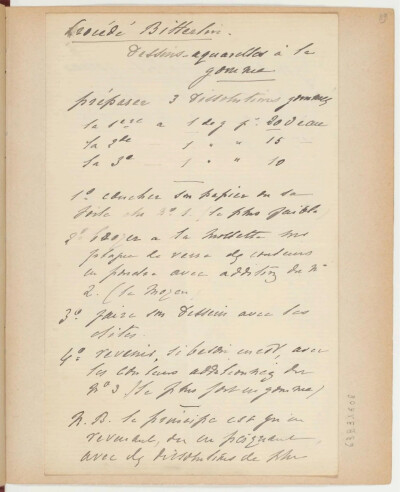 Procédé Bitterlin.
Dessins-aquarelles à la
gomme
préparer 3 dissolutions gommées
la 1ère a 1 de g pr. 20 d'eau
la 2de 1 " " 15
la 3e 1 " " 10
1º coucher son papier ou sa
toile du nº 1 la plus faible
2º broyer a la mollette sur
plaque de verre des couleurs
en poudre avec addition du nº
2. (le moyen)
3º faire son dessin avec les
dites.
4º revenir, si besoin en est, avec
les couleurs additionnées du
nº 3 (le plus fort en gomme)
N.B. le principe est qu'en
revenant, ou en peignant
avec des dissolutions de plus